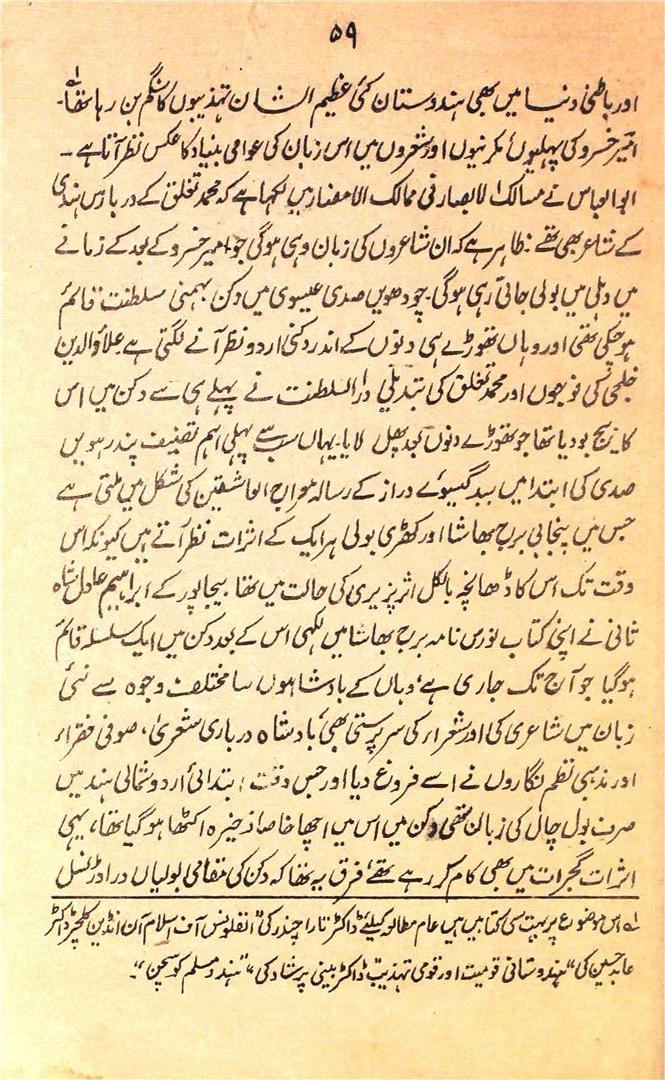 ۵۹
اور باطنی دنیا میں بھی ہندوستان کئی عظیم الشان تہذیبوں کا سنگم بن رہا تھا۔
امیر خسرو کی پہلیوں، مکرنیوں اور شعروں میں اس زبان کی عوامی بنیاد کا عکس نظر آتا ہے ۔
ابوالعباس نے مسالک الابصار فی ممالک الامصار میں لکھا ہے کہ محمد تغلق کے دربار میں ہندی
کے شاعر بھی تھے، ظاہر ہے کہ ان شاعروں کی زبان وہی ہوگی جو امیر خسرو کے بعد کے زمانے
میں دہلی میں بولی جاتی رہی ہوگی۔ چودھویں صدی عیسوی میں دکن بہمنی سلطنت قائم
ہو چکی تھی اور وہاں تھوڑے ہی دنوں کے اندر دکنی اردو نظر آنے لگتی ہے علاؤالدین
خلجی کی فوجوں اور محمد تغلق کی تبدیلی دارالسلطنت نے پہلے ہی سے دکن میں اس
کا بیج بو دیا تھا جو تھوڑے دنوں بعد پھل لایا۔ یہاں سب سے پہلی اہم تصنیف پندرہویں
صدی کی ابتدا میں سید گیسوئے دراز کے رسالہ معراج العاشقین کی شکل میں ملتی ہے
جس میں پنجابی برج بھاشا اور کھڑی بولی ہر ایک کے اثرات نظر آتے ہیں کیونکہ اس
وقت تک اس کا ڈھانچہ بالکل اثر پزیری کی حالت میں تھا بیجاپور کے ابراہیم عادل شاہ
ثانی نے اپنی کتاب نورس نامہ برج بھاشا میں لکھی اس کے بعد دکن میں ایک سلسلہ قائم
ہوگیا جو آج تک جاری ہے، وہاں کے بادشاہوں سا مختلف وجوہ سے نئی
زبان میں شاعری کی اور شعراء کی سرپرستی بھی، بادشاہ درباری شعریٰ، صوفی فقراء
اور مذہبی نظم نگاروں نے اسے فروغ دیا اور جس وقت ابتدائی اردو شمالی ہند میں
صرف بول چال کی زبان تھی دکن میں اس میں اچھا خاصا ذخیرہ اکٹھا ہو گیا تھا، یہی
اثرات گجرات میں بھی کام کر رہے تھے، فرق یہ تھا کہ دکن کی مقامی بولیاں دراوڑ النسل
لے اس موضوع پر بہت سی کتابیں ہیں عام مطالعہ کیلئے ڈاکٹر تارا چندر کی "انفلوینس آف اسلام آن انڈین کلچر، ڈاکٹر
عابد حسین کی "ہندوستانی قومیت اور قومی تہذیب" ڈاکٹر بینی پرشاد کی "ہندو مسلم کوسچن"۔